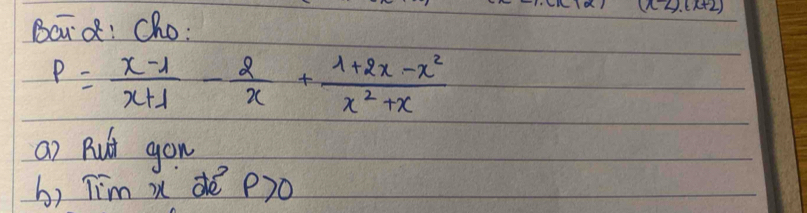 (x-2).(x+2)
Bài 2: Cho:
P = \frac{x-1}{x+1} - \frac{2}{x} + \frac{1+2x-x^2}{x^2+x}
a) Rút gọn
b) Tìm x để P>0